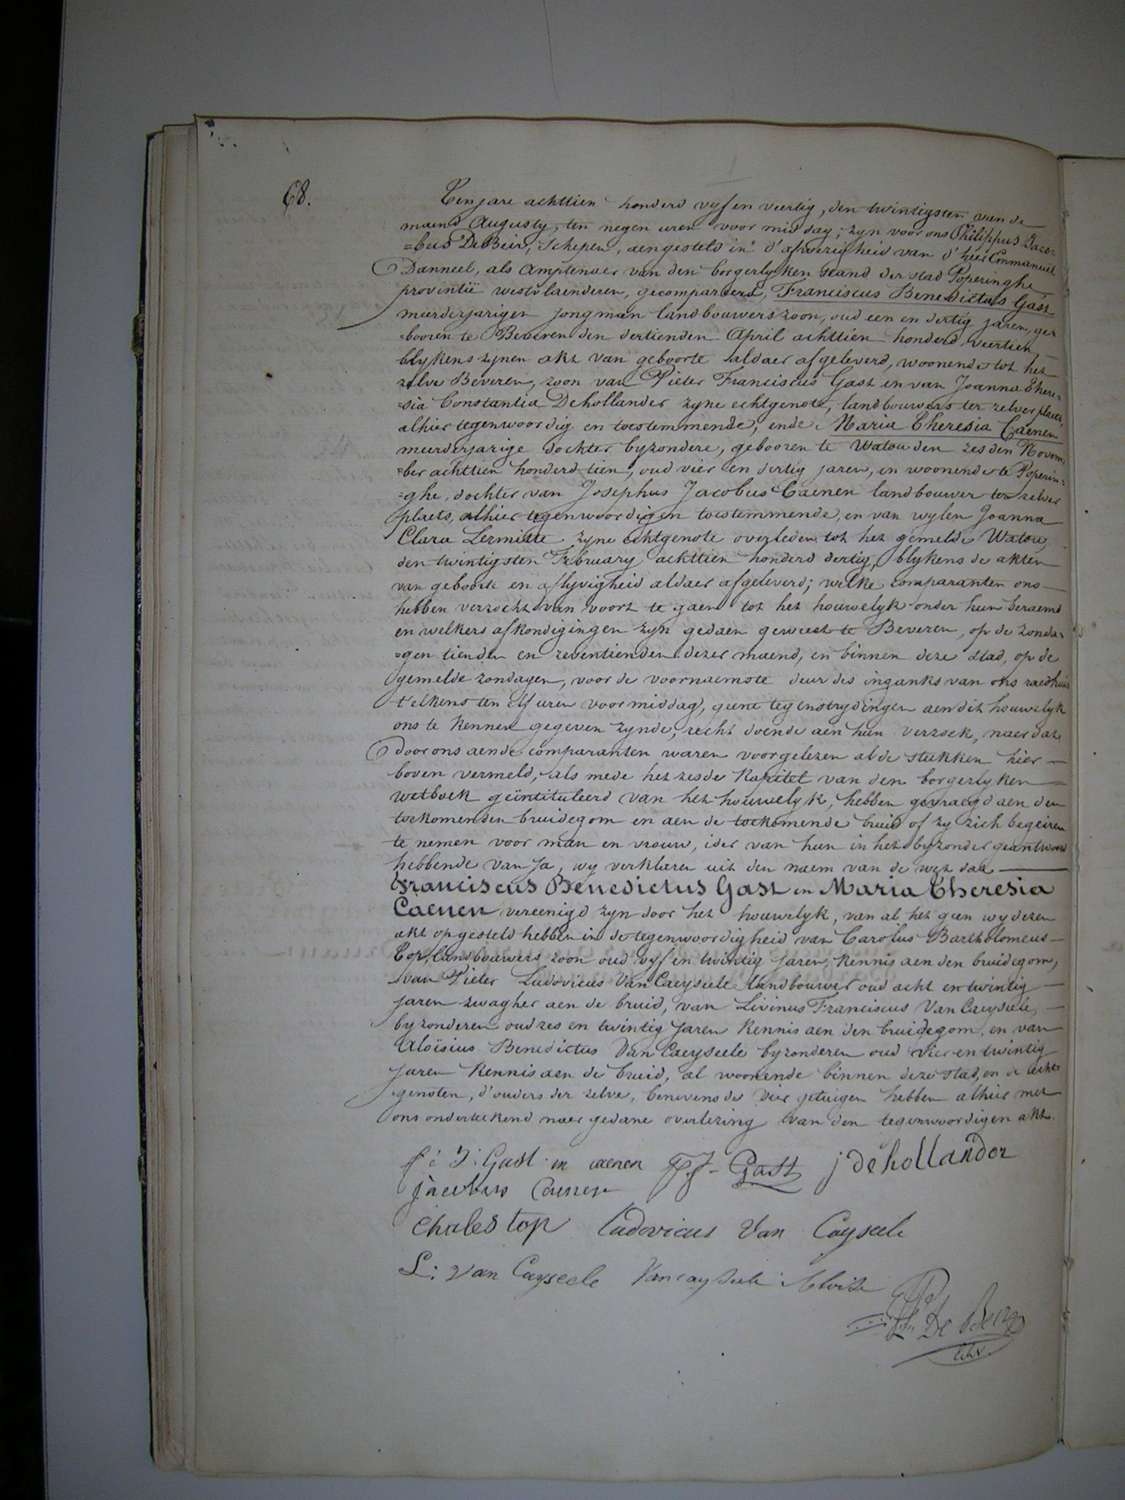 68.
Tenjare achttien honderd vyf en veertig, den twintigsten van de
maend Augusty, ten negen uren voor middag; zyn voor ons Philippus Jaco-
=bus De Beir, Schepen, aengesteld in d'afwezigheid van d'heer Emmanuel
Danneel, als Amptenaer van den borgerlyken stand der stad Poperinghe
provintië westvlaenderen, gecompareerd, Franciscus Benedictus Gast
meerderjarigen jongman landbouwerszoon, oud een en dertig jaren, ge=
=booren te Beveren den dertienden April achttien honderd veertien
blykens zynen akt van geboorte aldaer afgeleverd, woonende tot het
zelve Beveren, zoon van Pieter Franciscus Gast en van Joanna There=
=sia Constantia Dehollander zyne echtgenote, landbouwers ter zelver plaets,
alhier tegenwoordig en toestemmende, ende Maria Theresia Caenen
meerderjarige dochter byzondere, gebooren te Watou den zesden Novem=
=ber achttien honderd tien, oud vier en dertig jaren, en woonende te Poperin=
=ghe, dochter van Josephus Jacobus Caenen landbouwer ter zelver
plaets, alhier tegenwoordig en toestemmende, en van wylen Joanna
Clara Lermitte zyne echtgenote overleden tot het gemelde Watou,
den twintigsten February achttien honderd dertig, blykens de akten
van geboorte en aflyvigheid aldaer afgeleverd; welke comparanten ons
hebben verzocht van voort te gaen tot het houwelyk onder hun beraemd
en welkers afkondigingen zyn gedaen geweest te Beveren, op de zonda=
=gen tienden en zeventienden dezer maend, en binnen deze stad, op de
gemelde zondagen, voor de voornaemste deur des inganks van ons raedhuis
telkens ten elf uren voormiddag, geene tegenstrydingen aen dit houwelyk
ons te kennen gegeven zynde, recht doende aen hun verzoek, naer dat
door ons aende comparanten waren voorgelezen al de stukken hier
boven vermeld, als mede het zesde Kapittel van den borgerlyken
wetboek geïntituleerd van het houwelyk, hebben gevraegd aen den
toekomenden bruidegom en aen de toekomende bruid of zy zich begeiren
te nemen voor man en vrouw, ider van hun in het byzonder geantwoord
hebbende van Ja, wy verklaren uit den naem van de wet dat
Franciscus Benedictus Gast en Maria Theresia
Caenen vereenigd zyn door het houwelyk, van al het geen wy dezen
akt opgesteld hebben in de tegenwoordigheid van Carolus Bartholomeus
Top, landbouwers zoon oud vyf en twintig jaren, kennis aen den bruidegom,
van Pieter Ludovicus Van Cayseele landbouwer oud acht en twintig
jaren zwagher aen de bruid, van Livinus Franciscus Van Cayseele,
byzonderen oud zes en twintig jaren kennis aen den bruidegom, en van
Aloïsius Benedictus Van Cayseele byzonderen oud vier en twintig
jaren kennis aen de bruid, al woonende binnen deze stad, en de echt
genoten, d'ouders der zelve, benevens de vier getuigen hebben alhier met
ons onderteekend naer gedane overlezing van den tegenwoordigen akt.
Gast en caenen P.F. Gast j dehollander
jacobus Caenen
Charles top Ludovicus Van Cayseele
L: Van Cayseele Vancayseele Aloïse
De Beir